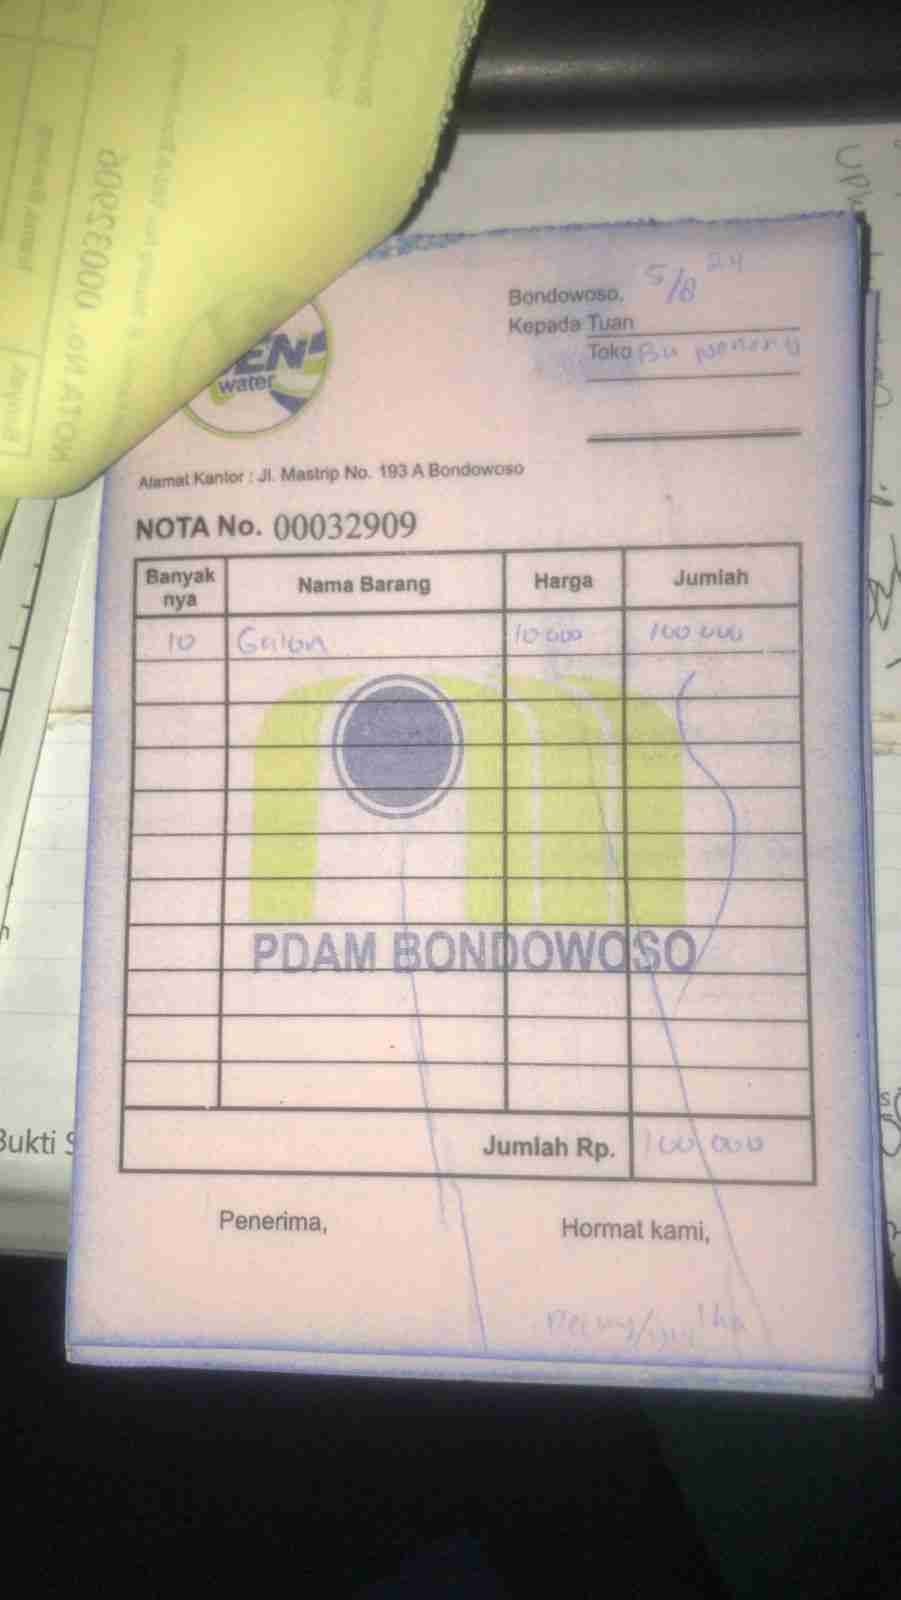 00032906
NOTA No.
water
Bondowoso, 5/8 24
Kepada Tuan
Toko Bu
Alamat Kantor : Jl. Mastrip No. 193 A Bondowoso
NOTA No. 00032909
Banyak nya Nama Barang Harga Jumlah
10 Galon 10.000 100.000
PDAM BONDOWOSO
Jumlah Rp. 100.000
Penerima, Hormat kami,
Bukti